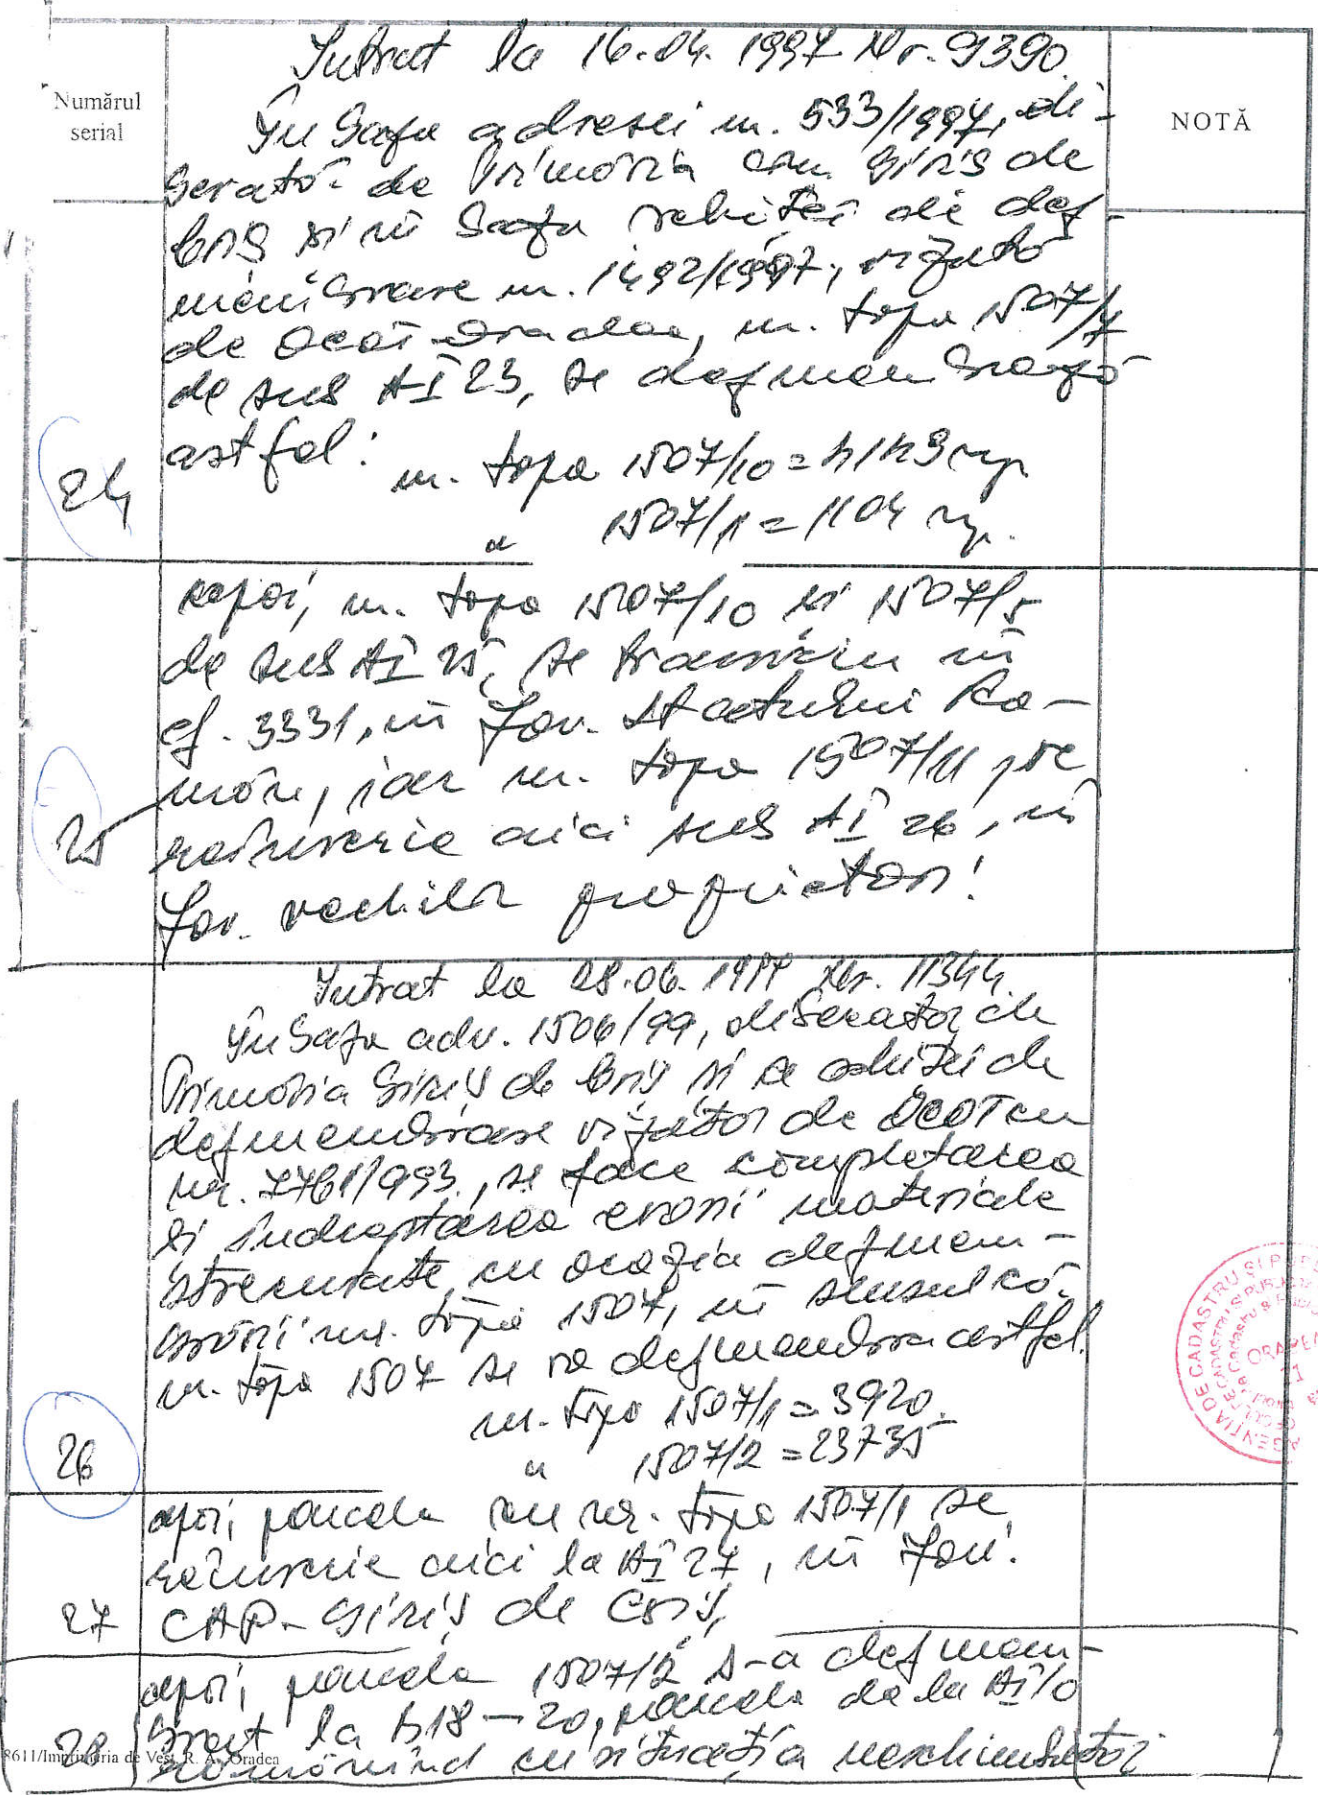 Numărul
serial
NOTĂ
Intrat la 16.04. 1997 Nr. 9390.
În baza adresei nr. 533/1997, eli-
berată de Primăria com. Giriş de
Criş şi în baza schiţei de dez-
membrare nr. 1492/1997, vizată
de OCOT Oradea, nr. topo 1507/7
de sub AI 23, se dezmembrează
astfel:
24
nr. topo 1507/10 = 4143 mp
" 1507/11 = 1104 mp.
apoi, nr. topo 1507/10 şi 1507/5
de sub AI 25, se transcriu în
cf. 3331, în fav. Statului Ro-
mân, iar nr. topo 1507/11, se
25
reînscrie aici sub AI 26, în
fav. vechilor proprietari!
Intrat la 28.06. 1999 Nr. 11344.
În baza adr. 1506/99, eliberată de
Primăria Giriş de Criş şi a schiţei de
dezmembrare vizată de OCOT cu
nr. 7761/993, se face completarea
şi îndreptarea erorii materiale
strecurate cu ocazia dezmem-
brării nr. topo 1507, în sensul că
nr. topo 1507 se va dezmembra astfel.
nr. topo 1507/1 = 3920.
26
" 1507/2 = 23735
apoi, parcela cu nr. topo 1507/1 se
reînscrie aici la AI 27, în fav.
27
CAP - Giriş de Criş,
apoi, parcela 1507/2 s-a dezmem-
brat la B18 - 20, parcela de la AI 10
28
rămânând cu situaţia neschimbată
8611/Imprimeria de Vest R. A. Oradea
ORADEA